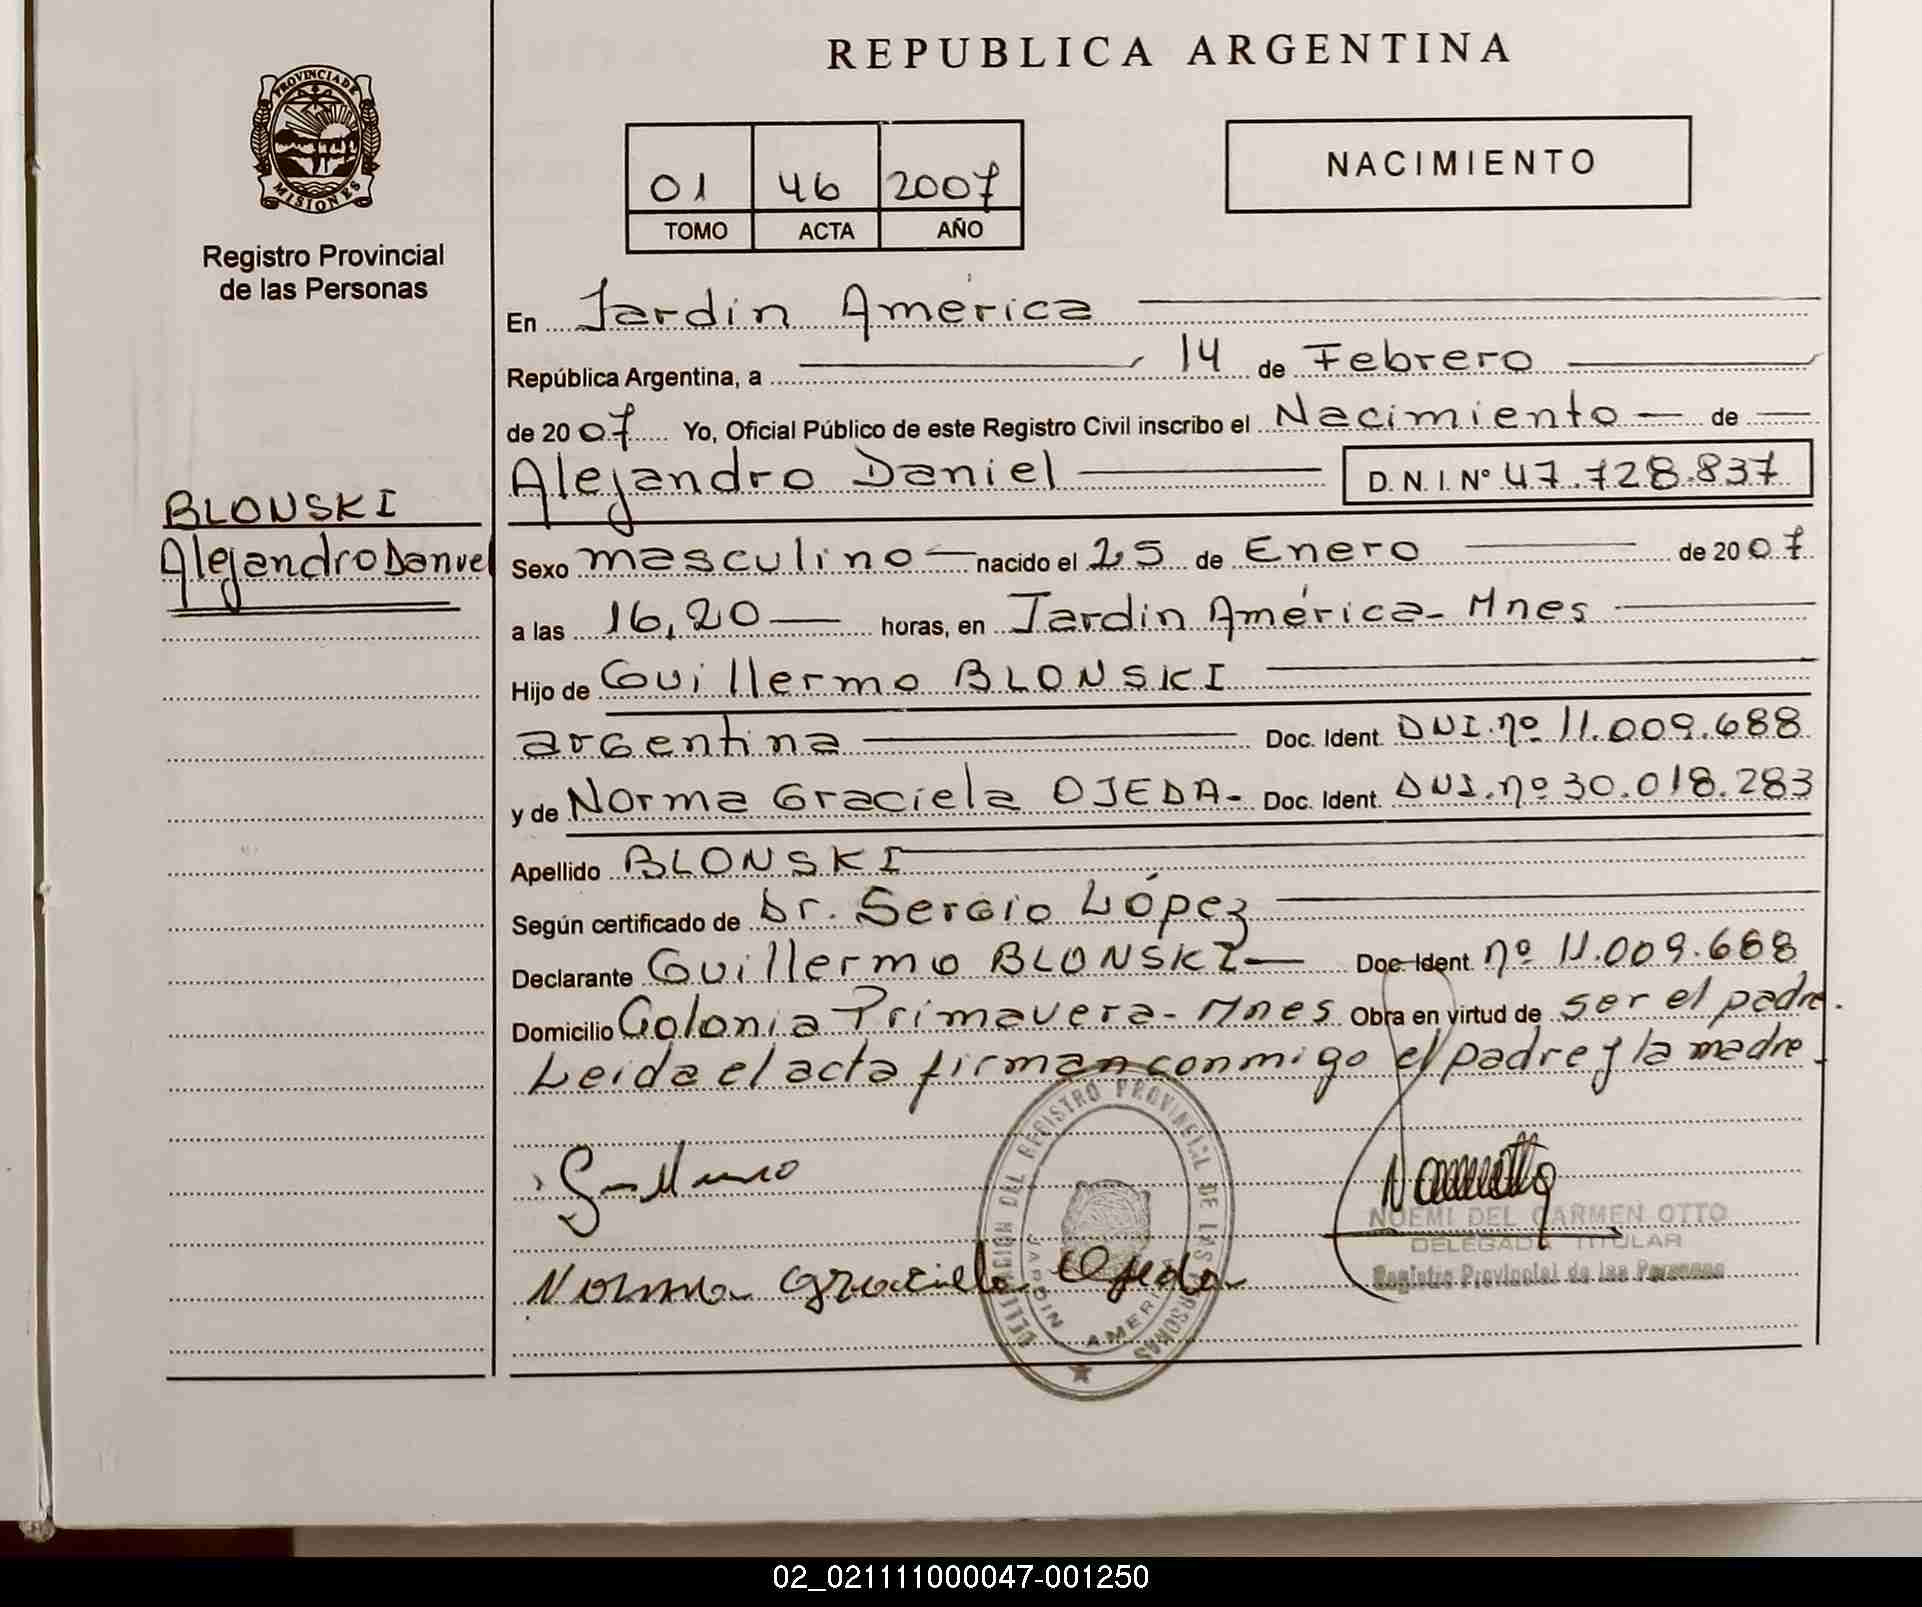 REPUBLICA ARGENTINA
PROVINCIA DE
MISIONES
Registro Provincial
de las Personas
01 46 2007
TOMO ACTA AÑO
NACIMIENTO
En Jardín América
República Argentina, a 14 de Febrero
de 2007 Yo, Oficial Público de este Registro Civil inscribo el Nacimiento de
Alejandro Daniel D. N. I. Nº 47.728.837
BLONSKI
Alejandro Daniel
Sexo masculino nacido el 25 de Enero de 2007
a las 16,20 horas, en Jardín América- Mnes
Hijo de Guillermo BLONSKI
argentina Doc. Ident. DNI.nº 11.009.688
y de Norma Graciela OJEDA- Doc. Ident. DNI.nº 30.018.283
Apellido BLONSKI
Según certificado de Dr. Sergio López
Declarante Guillermo BLONSKI Doc. Ident. nº 11.009.688
Domicilio Colonia Primavera- Mnes Obra en virtud de ser el padre.
Leida el acta firman conmigo el padre y la madre.
DELEGACION DEL REGISTRO PROVINCIAL DE LAS PERSONAS
JARDIN AMERICA
Norma Graciela Ojeda
NOEMI DEL CARMEN OTTO
DELEGADA TITULAR
Registro Provincial de las Personas
02_021111000047-001250